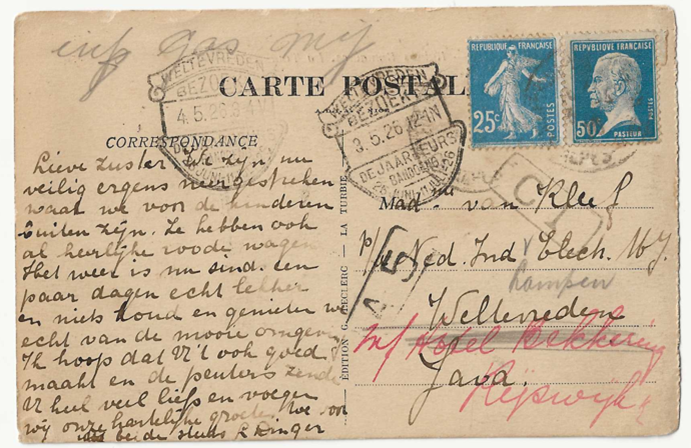 inf Gas mij
CARTE POSTALE
CORRESPONDANCE
WELTEVREDEN
BEZOEKT
4.5.26
DE JAARBEURS
WELTEVREDEN
BEZOEKT
3.5.26 12-1N
DE JAARBEURS
BANDOENG
REPUBLIQUE FRANÇAISE
25c
POSTES
REPVBLIQVE FRANÇAISE
50c
POSTES
PASTEUR
Lieve zuster We zijn nu
veilig ergens neergestreken
waar we voor de kinderen
buiten zijn. Ze hebben ook
al heerlijke roode wagen
Het weer is nu sinds een
paar dagen echt lekker
en niets koud en genieten we
echt van de mooie omgeving
Ik hoop dat U 't ook goed
maakt en de peuters zende
U heel veel liefs en voegen
wij onze hartelijke groeten
beide steeds
ÉDITION G. LECLERC — LA TURBIE
Mad. van Kleef
p/a Ned. Ind Elech. Mij.
Kampen
Weltevreden
Java.
inf Hotel Bekkering
Rijswijk